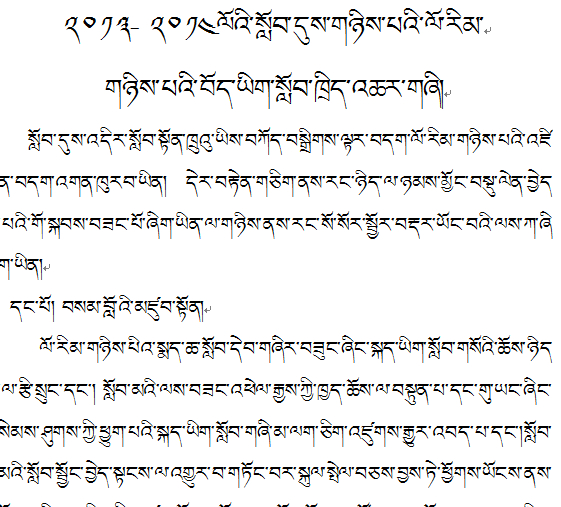 ༢༠༡༣- ༢༠༡༤ལོའི་སློབ་དུས་གཉིས་པའི་ལོ་རིམ་
གཉིས་པའི་བོད་ཡིག་སློབ་ཁྲིད་འཆར་གཞི།
སློབ་དུས་འདིར་སློབ་སྟོན་ཁྲུའུ་ཡིས་བཀོད་བསྒྲིགས་ལྟར་བདག་ལོ་རིམ་གཉིས་པའི་འཛི
ན་བདག་འགན་ཁུརབ་ཡིན། དེར་བརྟེན་གཅིག་ནས་རང་ཉིད་ལ་ཉམས་མྱོང་བསྡུ་ལེན་བྱེད
པའི་གོ་སྐབས་བཟང་པོ་ཞིག་ཡིན་ལ་གཉིས་ནས་རང་སོ་སོར་སྦྱོར་བརྡར་ཡོང་བའི་ལས་ཀ་ཞི
ག་ཡིན།
དང་པོ། བསམ་བློ་འི་མཛུབ་སྟོན།
ལོ་རིམ་གཉིས་པིའ་སྨད་ཆ་སློབ་དེབ་གཞིར་བཟུང་ཞིང་སྐད་ཡིག་སློབ་གསོའི་ཆོས་ཉིད
ལ་རྩི་སྲུང་དང་། སློབ་མའི་ལས་བཟང་འཕེལ་རྒྱས་ཀྱི་ཁྱད་ཆོས་ལ་བསྟུན་པ་དང་གུ་ཡང་ཞིང
སེམས་ཤུགས་ཀྱི་ཕྱུག་པའི་སྐད་ཡིག་སློབ་གཞི་མ་ལག་ཅིག་འཛུགས་རྒྱུར་འབད་པ་དང་།སློབ
མའི་སློབ་སྦྱོང་བྱེད་སྟངས་ལ་འགྱུར་བ་གཏོང་བར་སྐུལ་སྤེལ་བཅས་བྱས་ཏེ་ཕྱོགས་ཡོངས་ནས